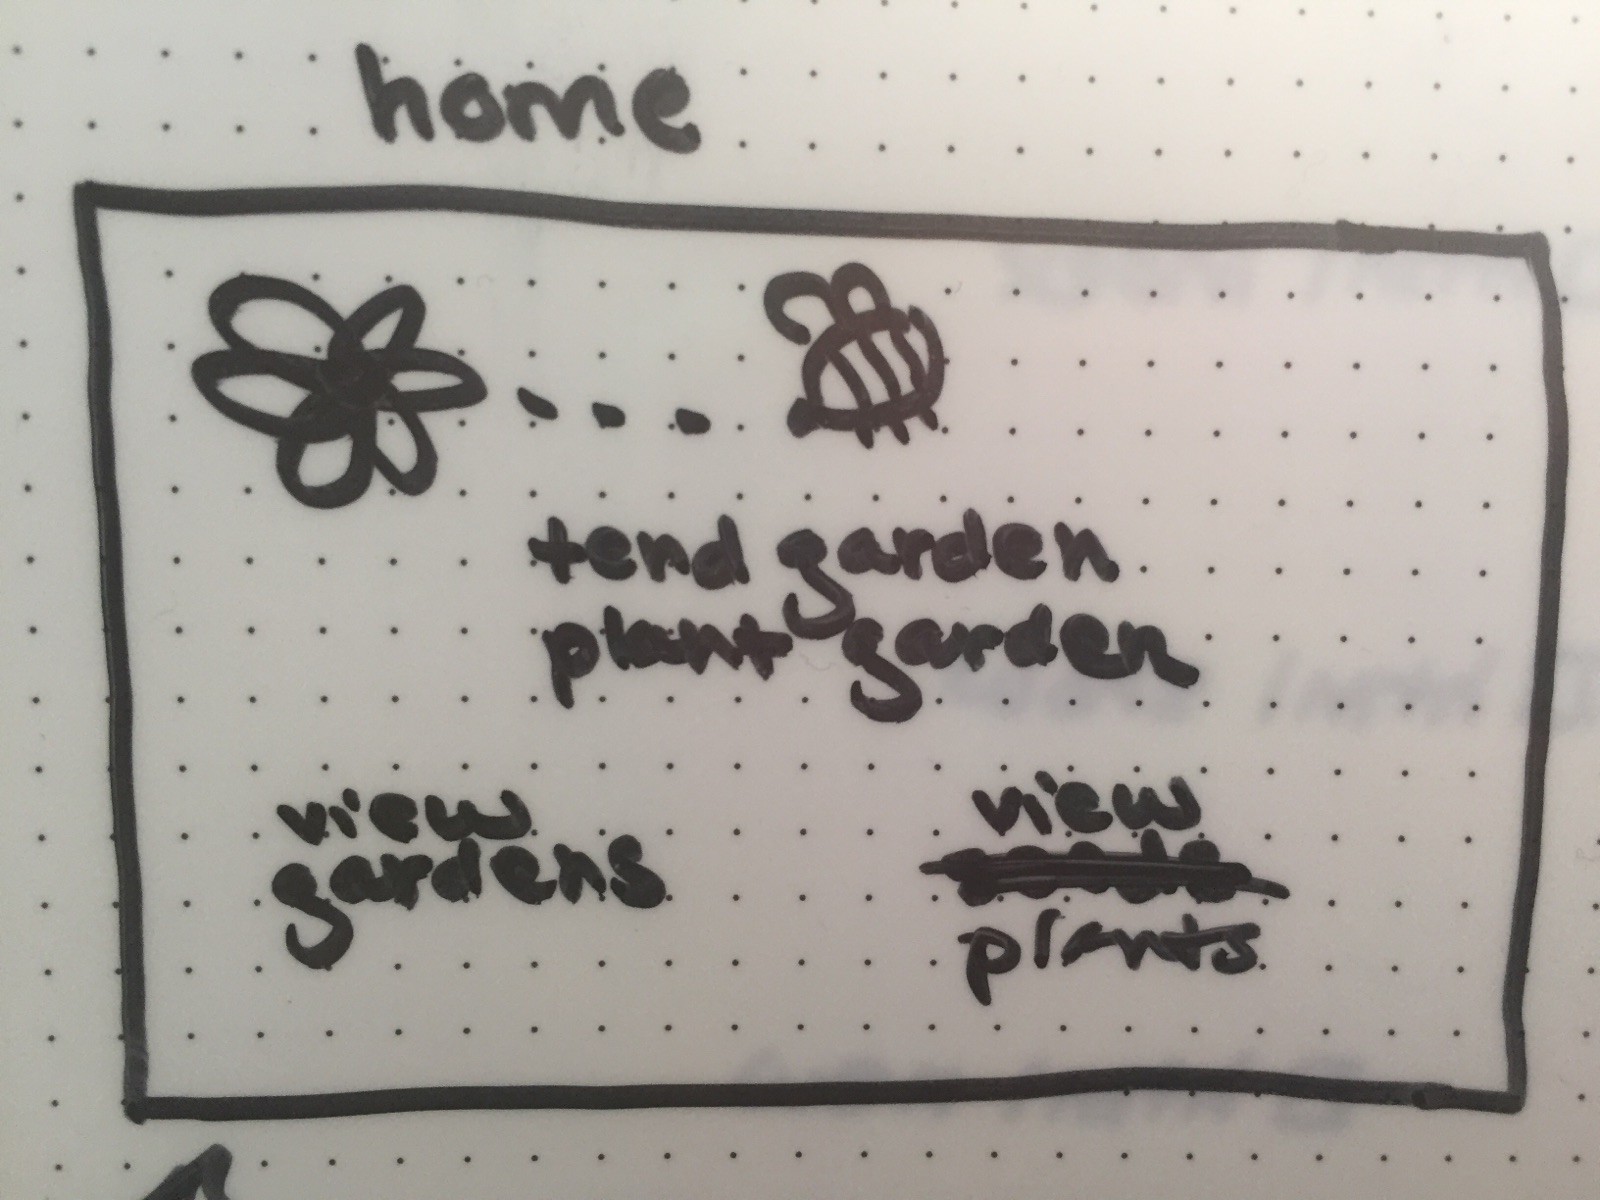 home
tend garden
plant garden
view
gardens
view
plants